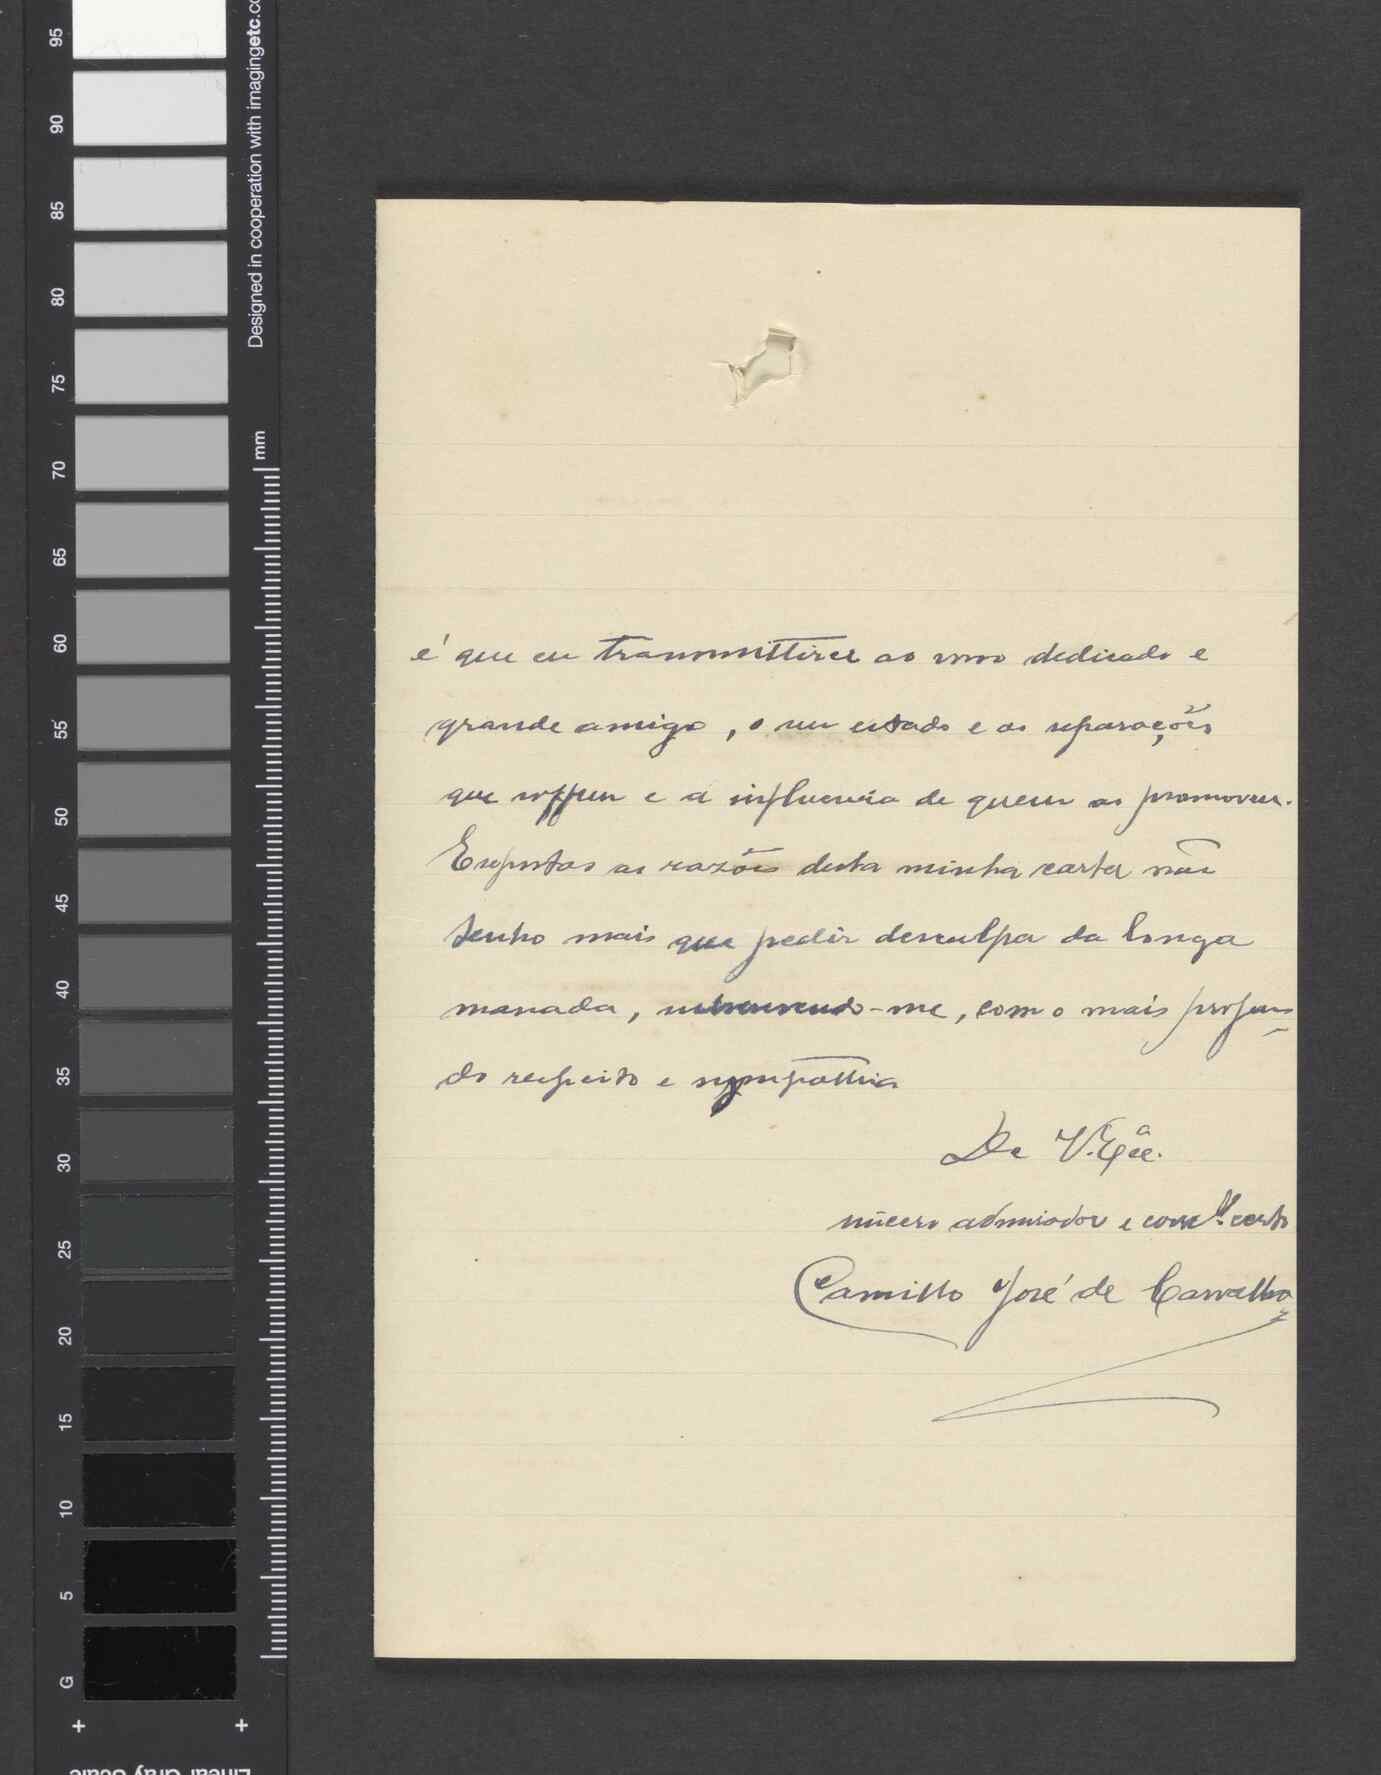 95
90
85
80
75
70
65
60
55
50
45
40
35
30
25
20
15
10
5
G
Designed in cooperation with imagingetc.co
mm
é que eu transmittirei ao vosso dedicado e
grande amigo, o seu estado e as reparações
que soffreu e a influencia de quem as promoveu.
Expostas as razões desta minha carta não
tenho mais que pedir desculpa da longa
massada, subscrevendo-me, com o mais profun
do respeito e sympathia
De V. Exª.
sincero admirador e certo
Camillo José de Carvalho